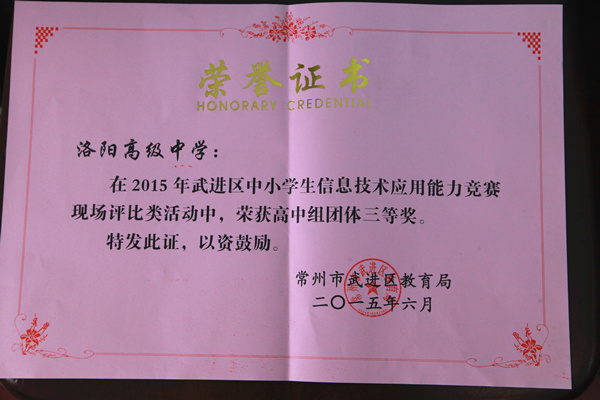 荣誉证书
HONORARY CREDENTIAL
洛阳高级中学：
在 2015 年武进区中小学生信息技术应用能力竞赛
现场评比类活动中，荣获高中组团体三等奖。
特发此证，以资鼓励。
常州市武进区教育局
二〇一五年六月